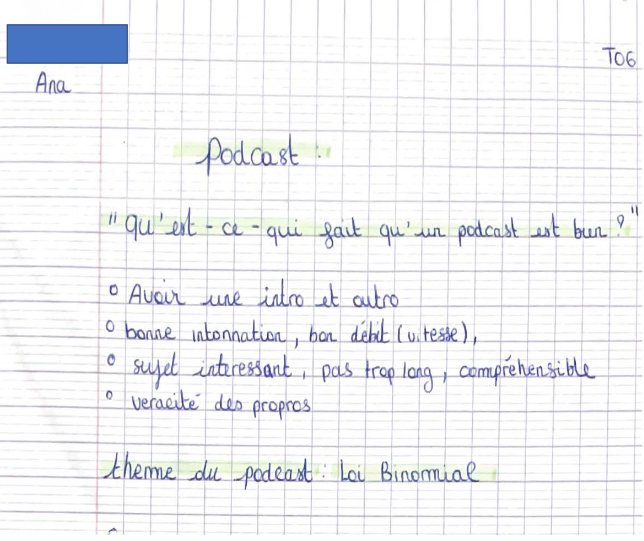 T06
Ana
Podcast :
"qu'est-ce-qui fait qu'un podcast est bien ?"
o Avoir une intro et outro
o bonne intonnation, bon débit (vitesse),
o sujet interessant, pas trop long, compréhensible
o veracité des propros
theme du podcast : Loi Binomial